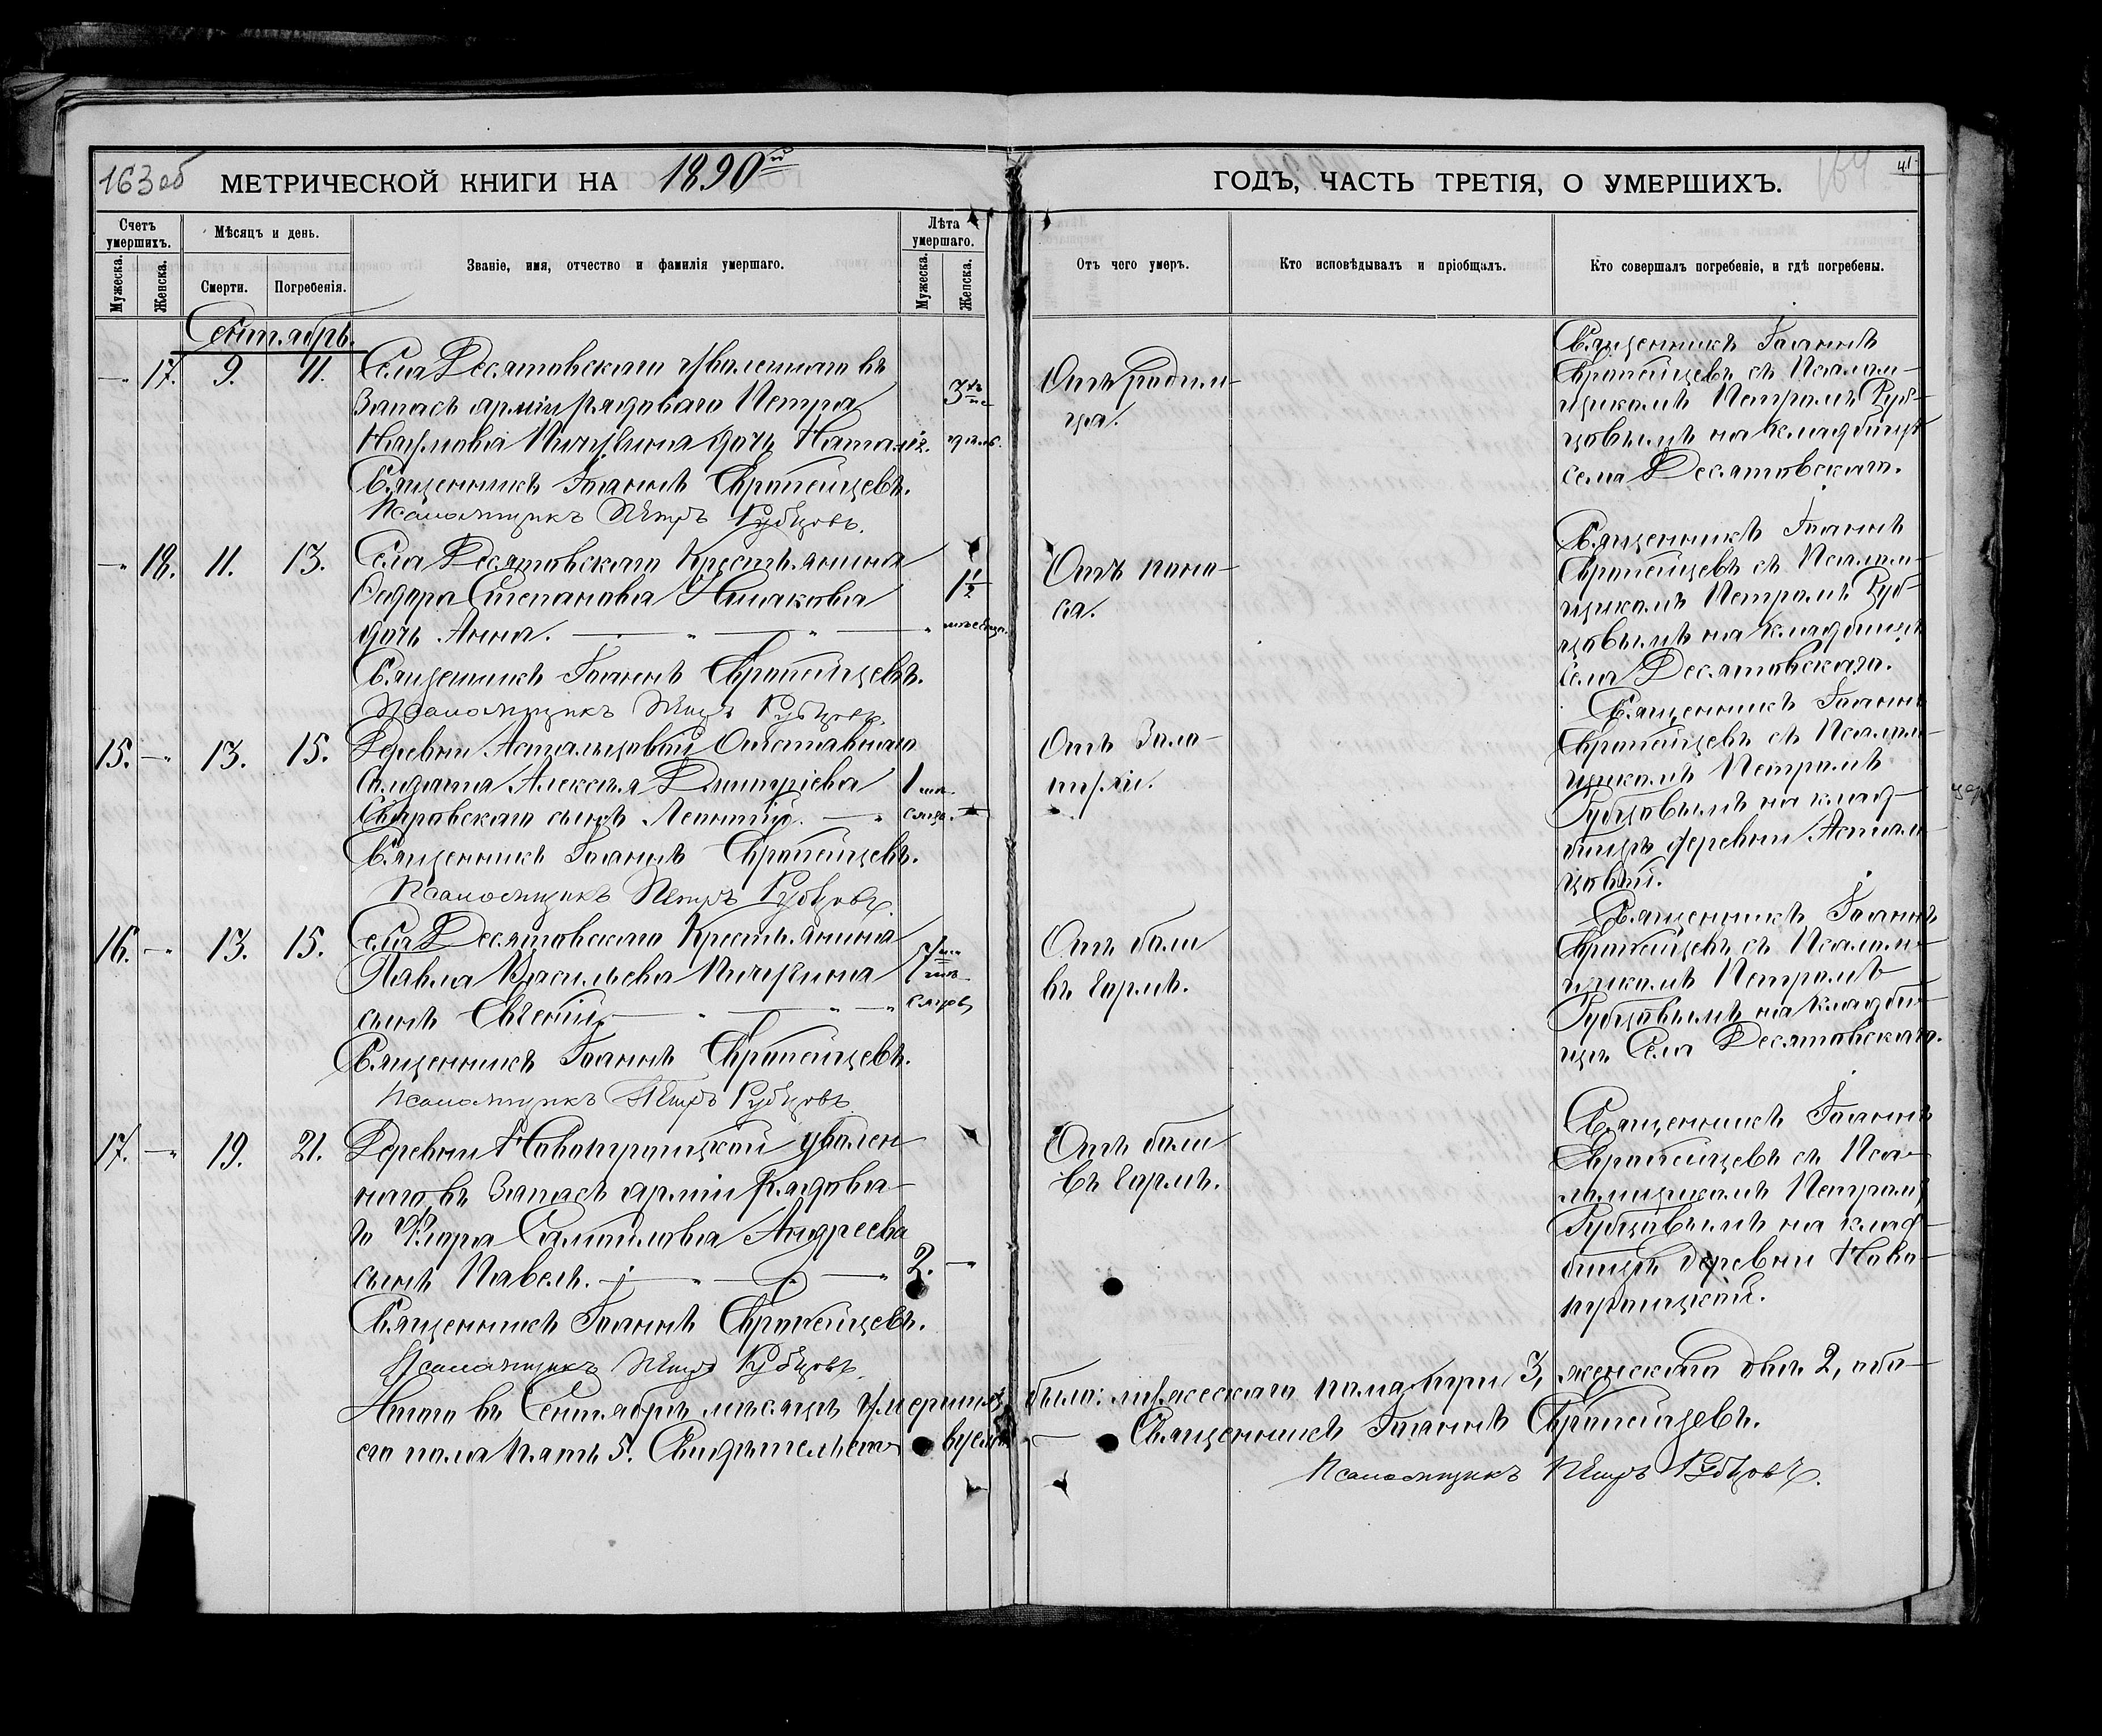 163об
МЕТРИЧЕСКОЙ КНИГИ НА 1890й
ГОДЪ, ЧАСТЬ ТРЕТІЯ, О УМЕРШИХЪ.
164
41
Счетъ умершихъ.
Мѣсяцъ и день.
Званіе, имя, отчество и фамилія умершаго.
Лѣта умершаго.
Мужеска.
Женска.
Смерти.
Погребенія.
Мужеска.
Женска.
Отъ чего умеръ.
Кто исповѣдывалъ и пріобщалъ.
Кто совершалъ погребеніе, и гдѣ погребены.
Сентябрь.
17. 9. 11. Села Десятовскаго уволеннаго въ
запасъ арміи рядоваго Петра
Наумова дочь Наталія.
Священникъ Іоаннъ Европейцевъ.
Псаломщикъ Петръ Рубцовъ.
3хъ не
дѣль.
Отъ родим
ца.
Священникъ Іоаннъ
Европейцевъ съ Псалом-
щикомъ Петромъ Руб-
цовымъ на кладбищѣ
села Десятовскаго.
18. 11. 13. Села Десятовскаго Крестьянина
Сидора Степанова
дочь Анна.
Священникъ Іоаннъ Европейцевъ.
Псаломщикъ Петръ Рубцовъ.
1½
мѣсяца.
Отъ поно-
са.
Священникъ Іоаннъ
Европейцевъ съ Псалом-
щикомъ Петромъ Руб-
цовымъ на кладбищѣ
села Десятовскаго.
15. 13. 15. Деревни Отставнаго
Солдата Алексѣя Дмитріева
сынъ Леонтій.
Священникъ Іоаннъ Европейцевъ.
Псаломщикъ Петръ Рубцовъ.
1 мѣ-
сяца.
Отъ Золо-
тухи.
Священникъ Іоаннъ
Европейцевъ съ Псалом-
щикомъ Петромъ
Рубцовымъ на клад-
бищѣ деревни
16. 13. 15. Села Десятовскаго Крестьянина
Павла Васильева
сынъ Евгеній.
Священникъ Іоаннъ Европейцевъ.
Псаломщикъ Петръ Рубцовъ
7ми
мѣ-
сяцовъ
Отъ боли
въ горлѣ.
Священникъ Іоаннъ
Европейцевъ съ Псалом-
щикомъ Петромъ
Рубцовымъ на кладби-
щѣ Села Десятовскаго.
17. 19. 21. Деревни Новотроицкой уволен
наго въ запасъ арміи Рядова-
го Самойлова Андреева
сынъ Павелъ.
Священникъ Іоаннъ Европейцевъ.
Псаломщикъ Петръ Рубцовъ.
2.
Отъ боли
въ горлѣ.
Священникъ Іоаннъ
Европейцевъ съ Пса-
ломщикомъ Петромъ
Рубцовымъ на клад-
бищѣ деревни Ново-
троицкой.
Итого въ Сентябрѣ мѣсяцѣ умершихъ было: мужескаго пола три 3, женскаго двѣ 2, обо-
его пола пять 5. Свидѣтельствуемъ Священникъ Іоаннъ Европейцевъ.
Псаломщикъ Петръ Рубцовъ.